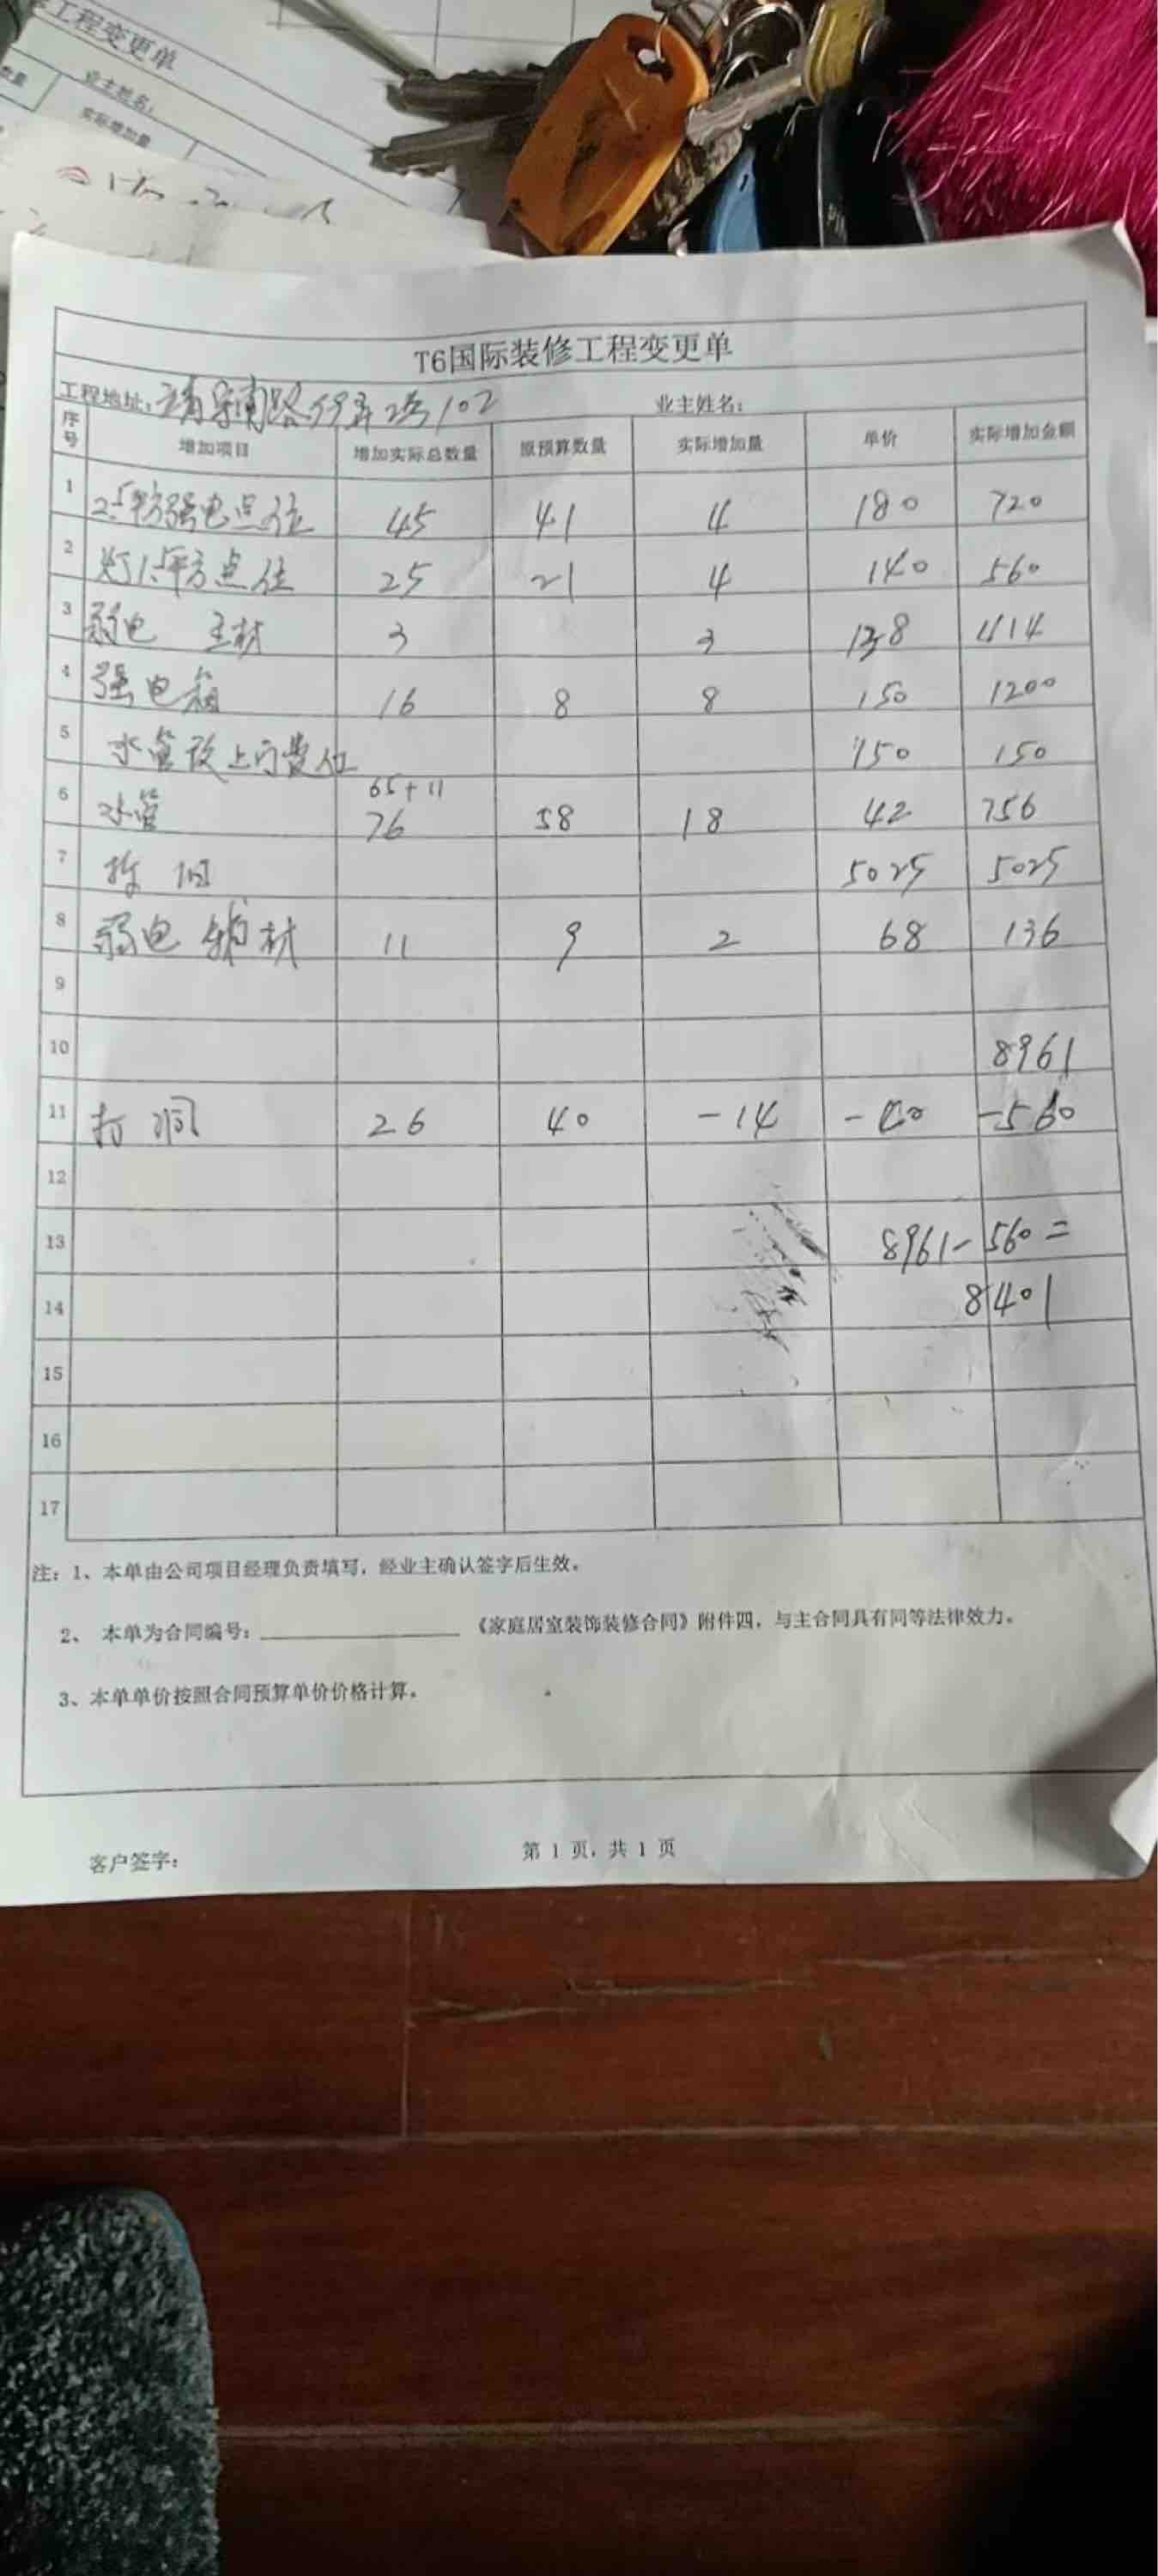 工程变更单
业主姓名:
数量 实际增加量
T6国际装修工程变更单
工程地址: 2号102 业主姓名:
序号 增加项目 增加实际总数量 原预算数量 实际增加量 单价 实际增加金额
1 2.5平方强电点位 45 41 4 180 720
2 灯1.5平方点位 25 21 4 140 560
3 弱电 主材 3 3 138 414
4 强电箱 16 8 8 150 1200
5 水管改上门费 150 150
65+11
6 水管 76 58 18 42 756
7 5025 5025
8 弱电 辅材 11 9 2 68 136
9
10 8961
11 打洞 26 40 -14 -40 -560
12
13 8961-560=
14 8401
15
16
17
注: 1、本单由公司项目经理负责填写,经业主确认签字后生效。
2、 本单为合同编号: 《家庭居室装饰装修合同》附件四,与主合同具有同等法律效力。
3、本单单价按照合同预算单价价格计算。
客户签字: 第 1 页,共 1 页